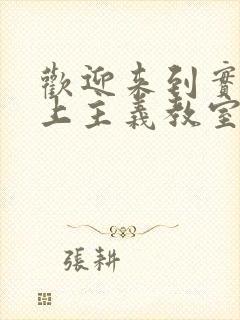 歡迎來到實
上主義教室
張耕